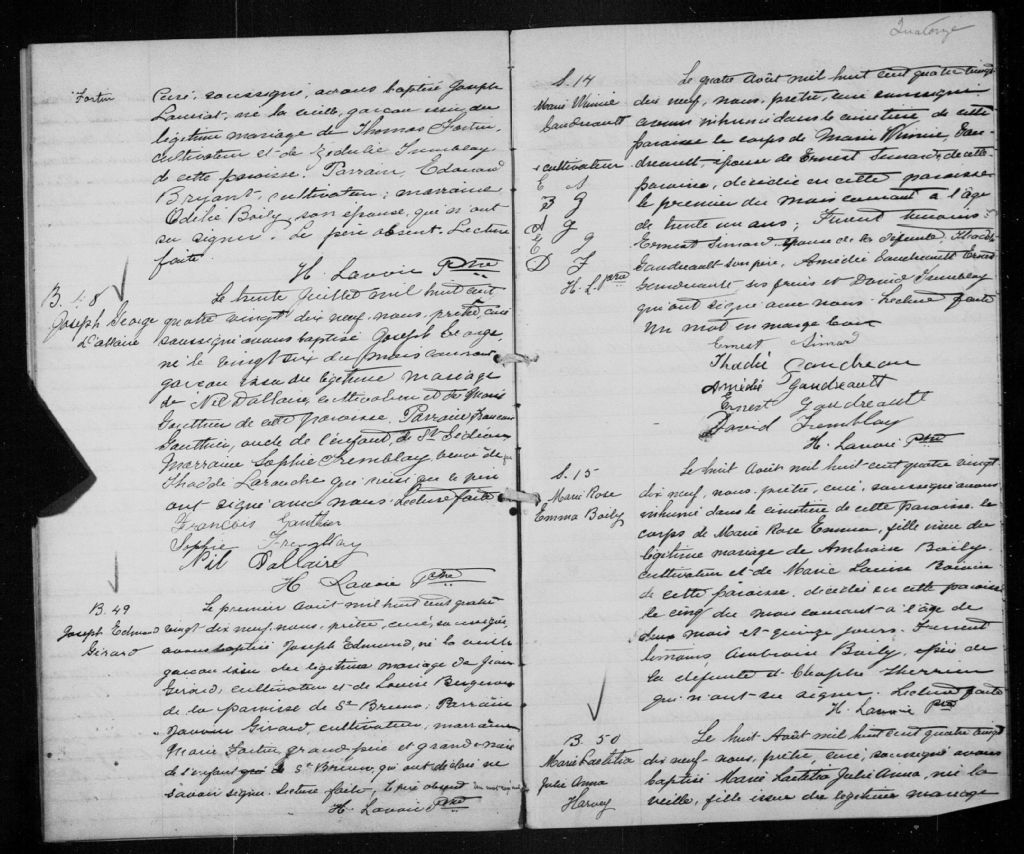 Quatorze
Fortin
Curé, soussigné, avons baptisé Joseph
Lauriat, né la veille, garçon issu du
légitime mariage de Thomas Fortin,
cultivateur et de Zédulie Tremblay
de cette paroisse. Parrain, Edouard
Bryant, cultivateur; marraine
Odile Boily, son épouse, qui n'ont
su signer. Le père absent. Lecture
faite.
H. Lavoie Ptre
B. 48
Joseph George
Dallaire
Le trente Juillet mil huit cent
quatre vingt dix neuf, nous, prêtre, curé
soussigné avons baptisé Joseph George,
né le vingt six du mois courant
garçon issu du légitime mariage
de Nil Dallaire, cultivateur et de Marie
Gauthier de cette paroisse. Parrain François
Gauthier, oncle de l'enfant, de St Gédéon
Marraine Sophie Tremblay, veuve de
Thadde Larouche qui ainsi que le père
ont signé avec nous. Lecture faite
François Gauthier
Sophie Tremblay
Nil Dallaire
H. Lavoie Ptre
B. 49
Joseph Edmond
Girard
Le premier Août mil huit cent quatre
vingt dix neuf, nous, prêtre, curé, soussigné,
avons baptisé Joseph Edmond, né la veille
garçon issu du légitime mariage de
Girard, cultivateur et de Louise Bergeron
de la paroisse de St Bruno; Parrain
Girard, cultivateur, marraine
Marie Fortin grand-père et grand-mère
de l'enfant de St Bruno, qui ont déclaré ne
savoir signer. Lecture faite, le père absent
H. Lavoie Ptre
S. 14
Marie Winnie
Gaudreault
+ cultivateur
E S
B G
A G
E G
D T
H. L. Ptre
Le quatre Août mil huit cent quatre vingt
dix neuf, nous, prêtre, curé soussigné
avons inhumé dans le cimetière de cette
paroisse le corps de Marie Winnie, Gau-
dreault, épouse de Ernest Simard, de cette
paroisse, décédée en cette paroisse
le premier du mois courant à l'âge
de trente un ans; Furent témoins:
Ernest Simard, époux de la défunte, Thaddé
Gaudreault son père, Amédée Gaudreault Ernest
Gaudreault ses frères et David Tremblay
qui ont signé avec nous. Lecture faite
Un mot en marge bon
Ernest Simard
Thadé Gaudreau
Amédé Gaudreault
Ernest Gaudreault
David Tremblay
H. Lavoie Ptre
S. 15
Marie Rose
Emma Boily
Le huit Août mil huit cent quatre vingt
dix neuf, nous, prêtre, curé, soussigné avons
inhumé dans le cimetière de cette paroisse le
corps de Marie Rose Emma, fille issue du
légitime mariage de Ambroise Boily
cultivateur et de Marie Louise
de cette paroisse, décédée en cette paroisse
le cinq du mois courant à l'âge de
deux mois et quinze jours. Furent
témoins, Ambroise Boily, père de
la défunte et Cléophe Therrien
qui n'ont su signer. Lecture faite
H. Lavoie Ptre
B. 50
Marie Laetitia
Julie Anna
Harvey
Le huit Août mil huit cent quatre vingt
dix neuf, nous, prêtre, curé, soussigné avons
baptisé Marie Laetitia Julie Anna, née la
veille, fille issue du légitime mariage